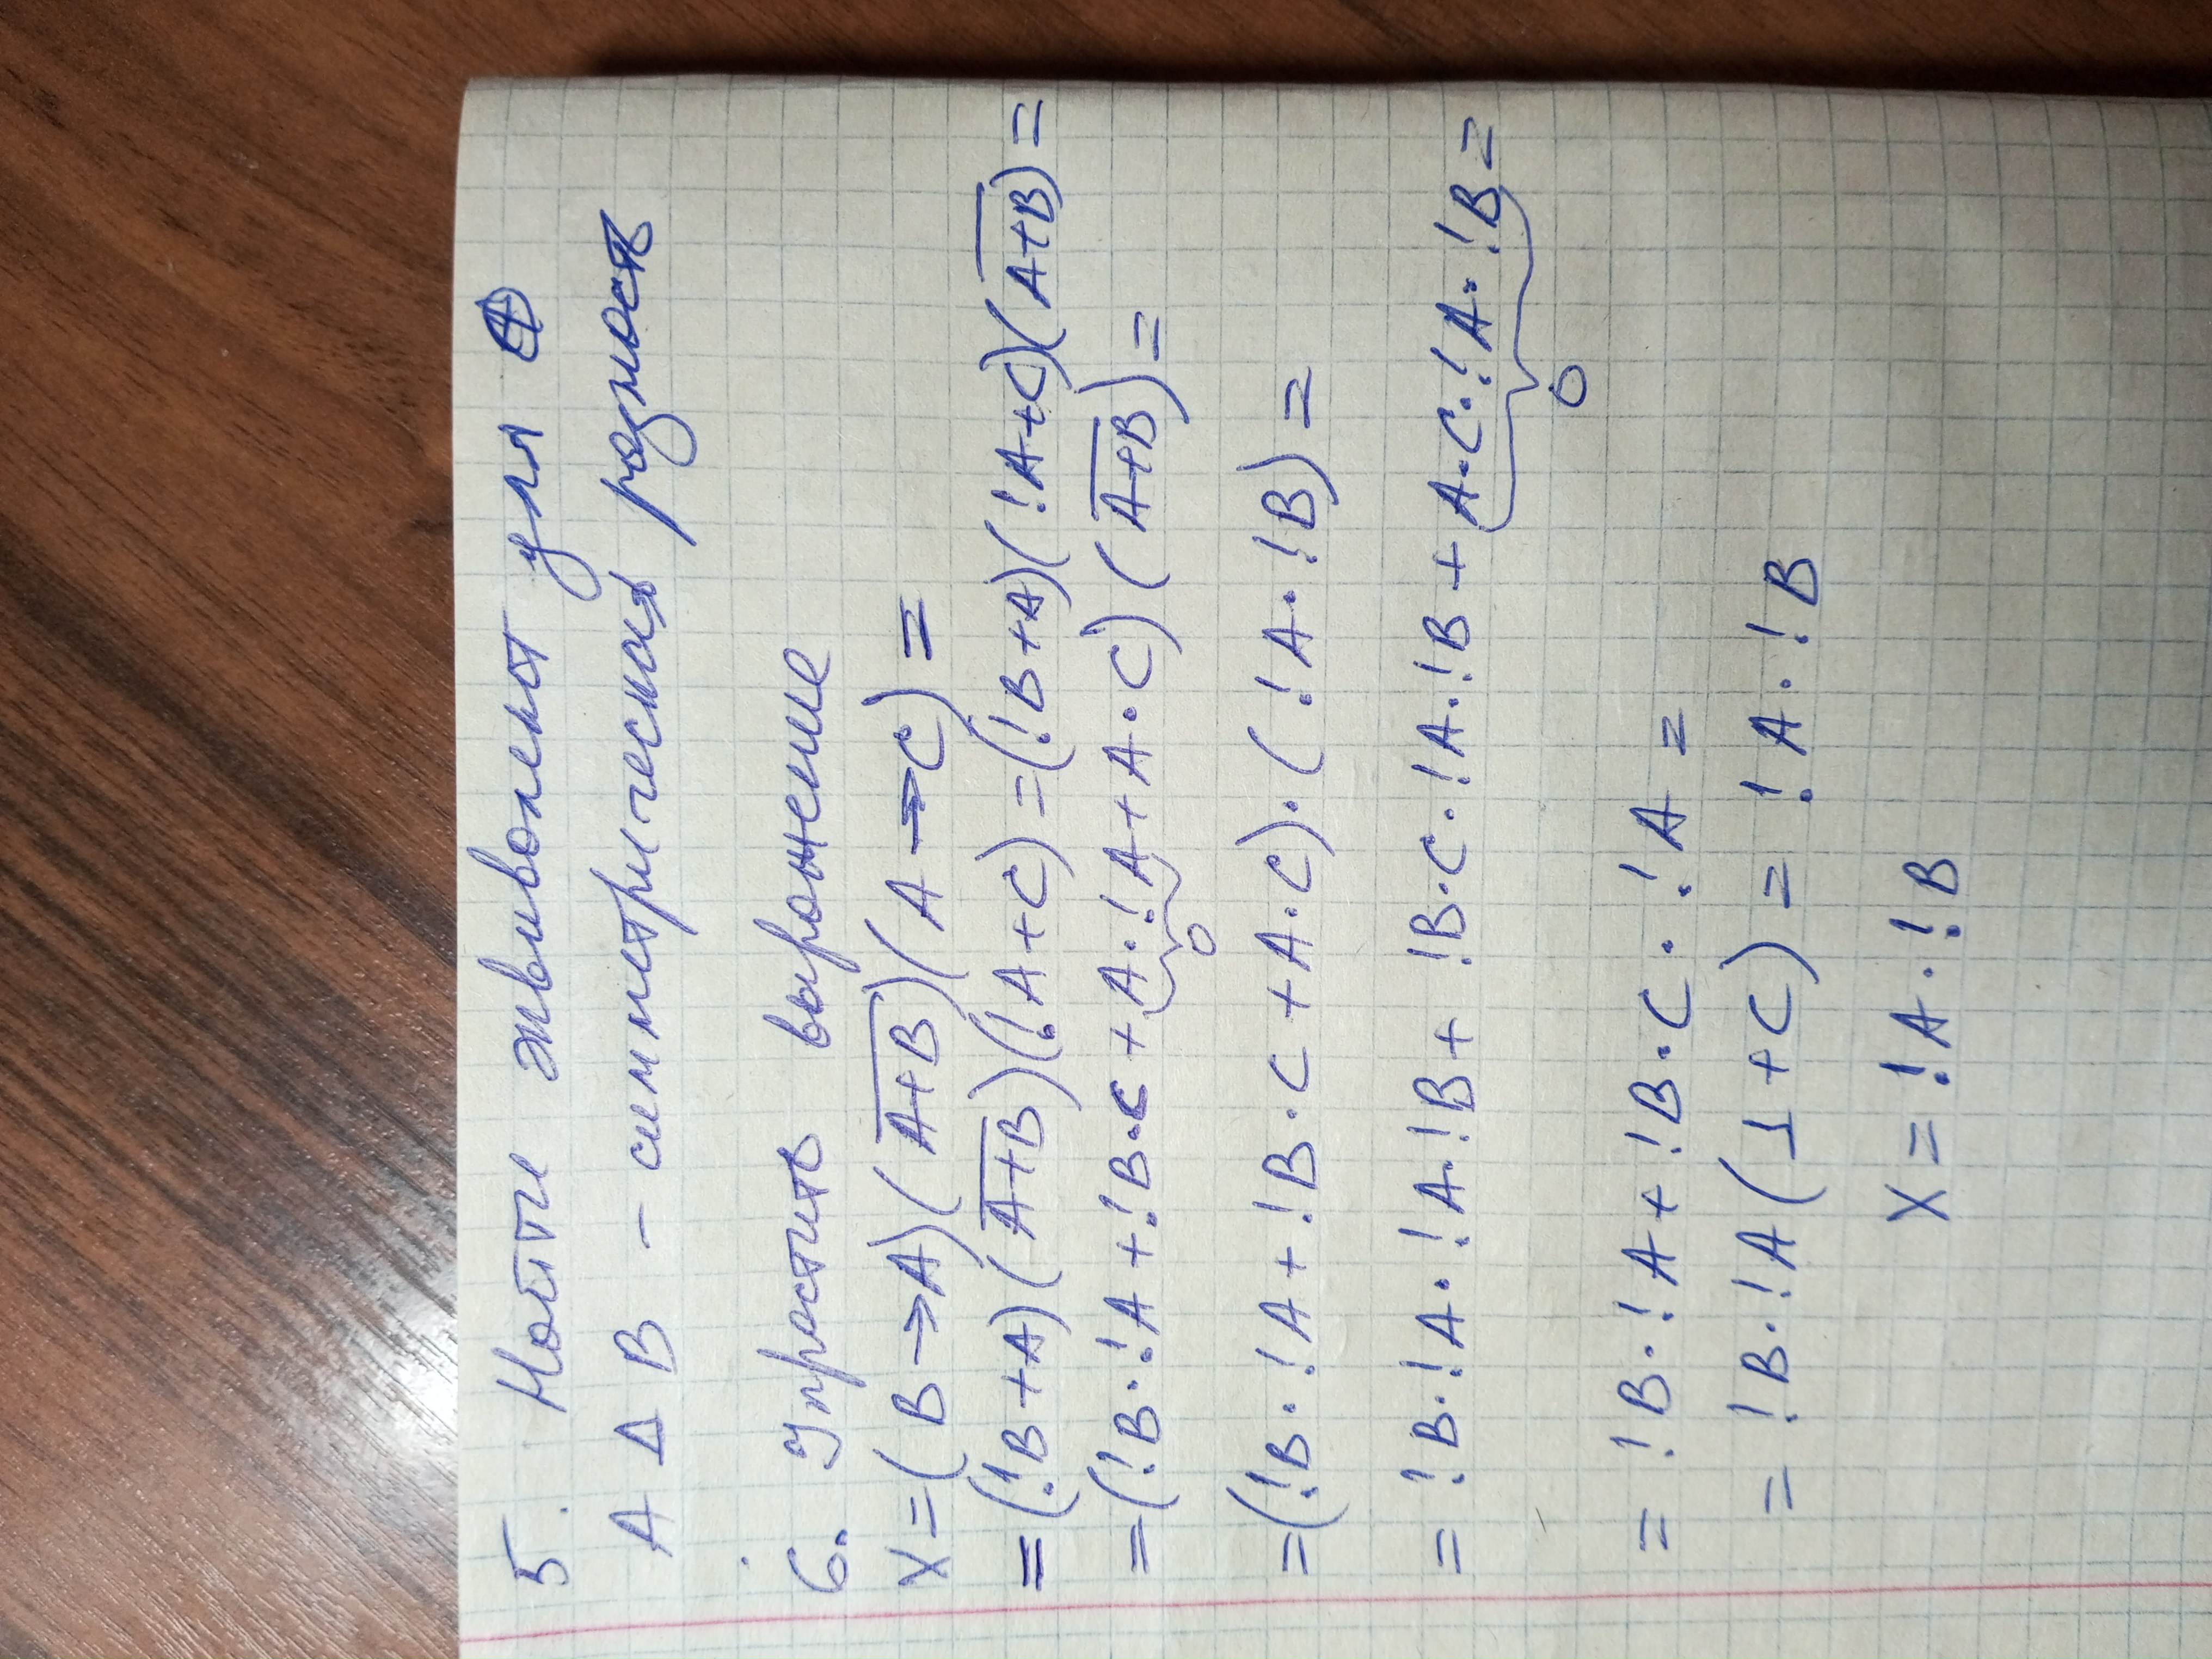 5. Найти эквивалент для ⊕
A Δ B – симметрическая разность
6. Упростить выражение
X=(B→A)(A̅+̅B̅)(A→C)=
=(!B+A)(A̅+̅B̅)(!A+C)=(!B+A)(!A+C)(A̅+̅B̅)=
=(!B·!A+!B·C+A·!A+A·C)(A̅+̅B̅)=
0
=(!B·!A+!B·C+A·C)·(!A·!B)=
= !B·!A·!A·!B+ !B·C·!A·!B+A·C·!A·!B=
0
= !B·!A+!B·C·!A=
= !B·!A(1+C)= !A·!B
X= !A·!B